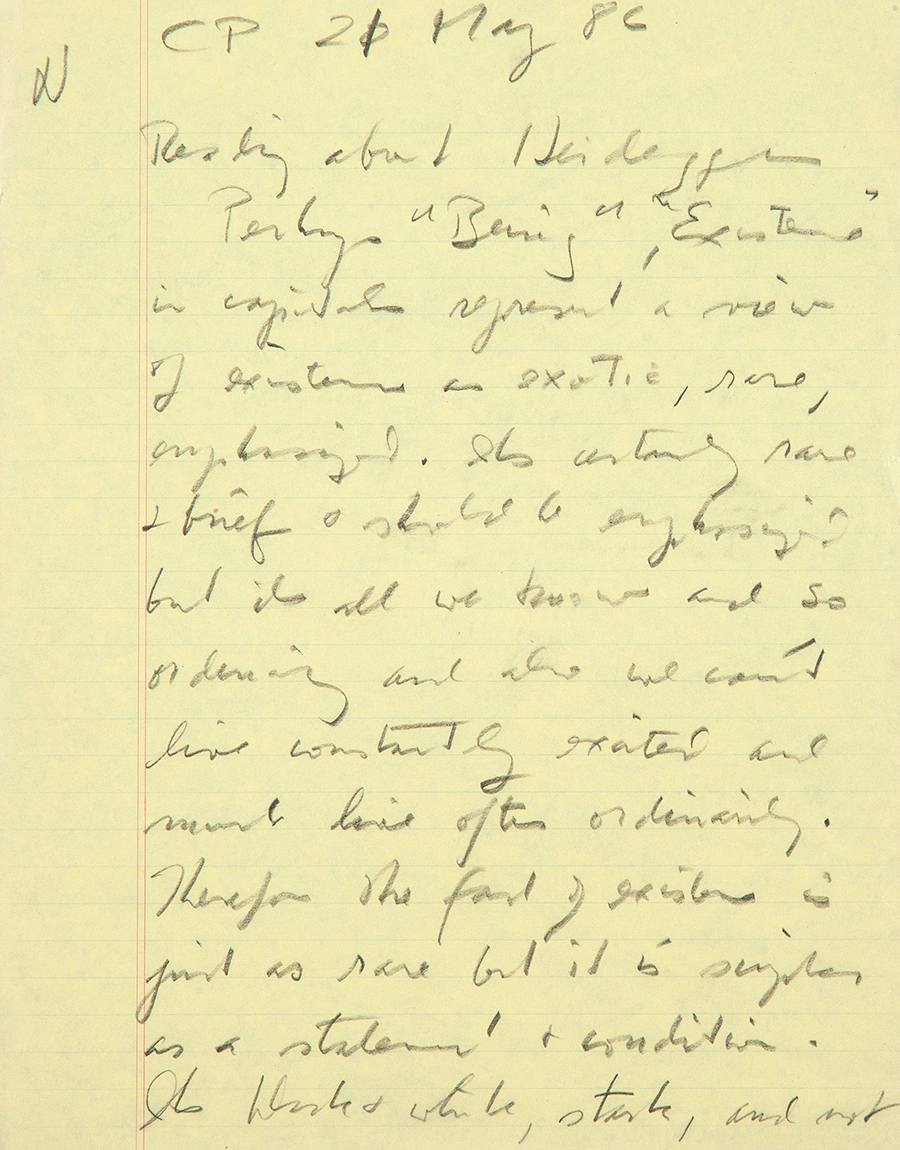 CP 21 May 86
N
Reading about Heidegger
Perhaps "Being", "Existence"
in capitals represent a view
of existence as exotic, rare,
emphasized. Its certainly rare
+ brief + should be emphasized
but its all we know and so
ordinary and also we can't
live constantly excited and
must live often ordinarily.
Therefore the fact of existence is
just as rare but it is simpler
as a statement + condition.
Its black + white, stark, and not